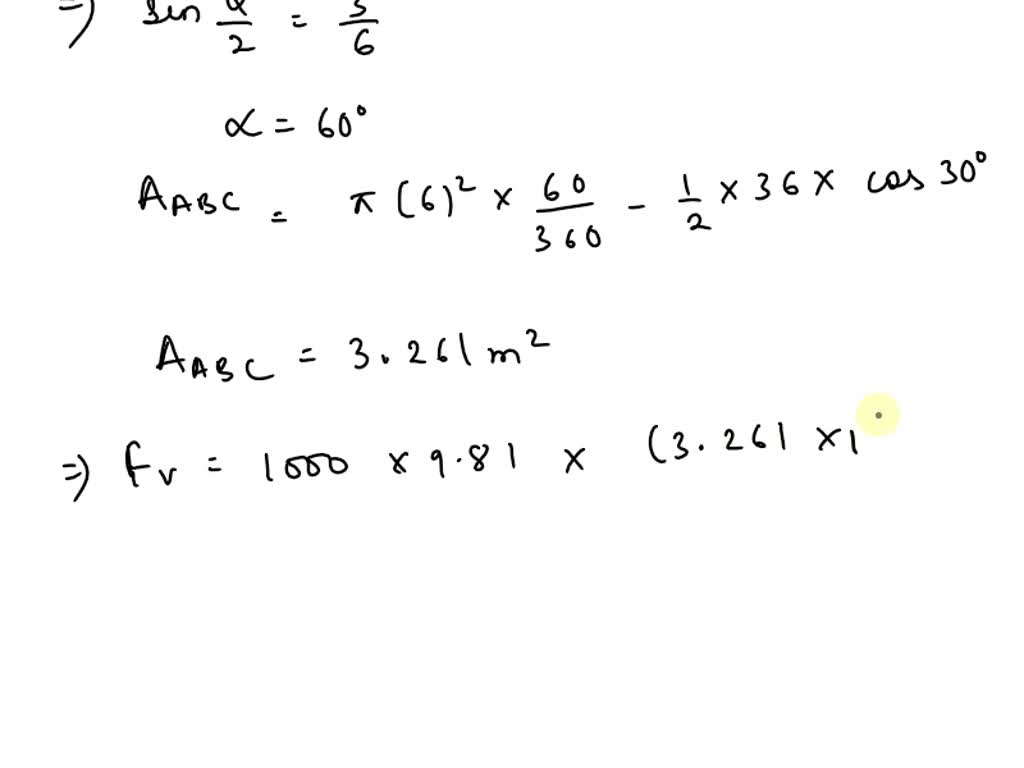 ⇒ sin α/2 = 3/6
α = 60°
A_ABC = π (6)² × 60/360 - 1/2 × 36 × cos 30°
A_ABC = 3.261 m²
⇒ Fv = 1000 × 9.81 × (3.261 × 1